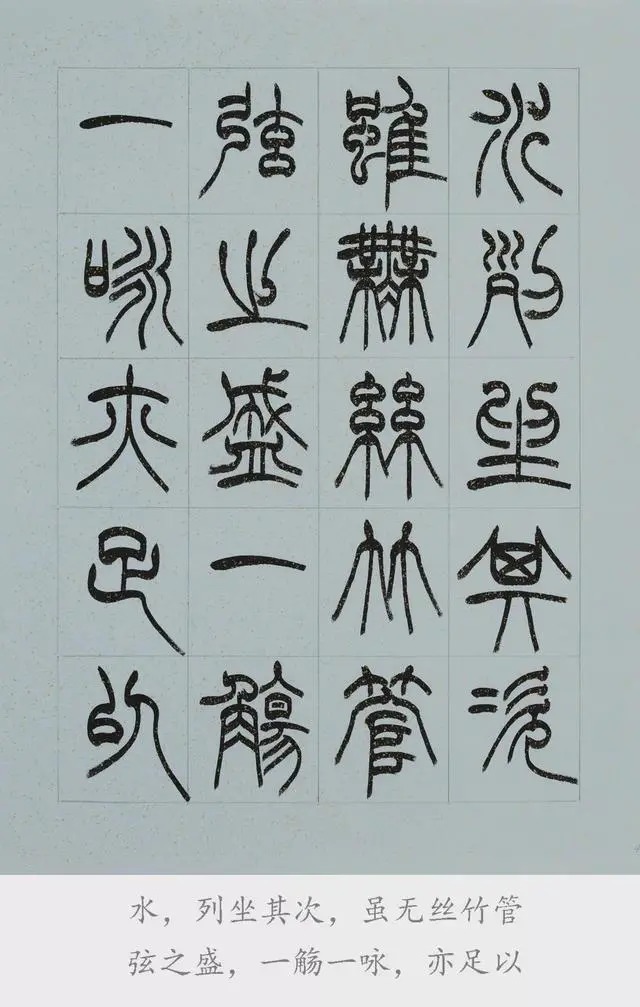 水列坐其次
雖無絲竹管
弦之盛一觴
一咏亦足以
水，列坐其次，虽无丝竹管
弦之盛，一觞一咏，亦足以